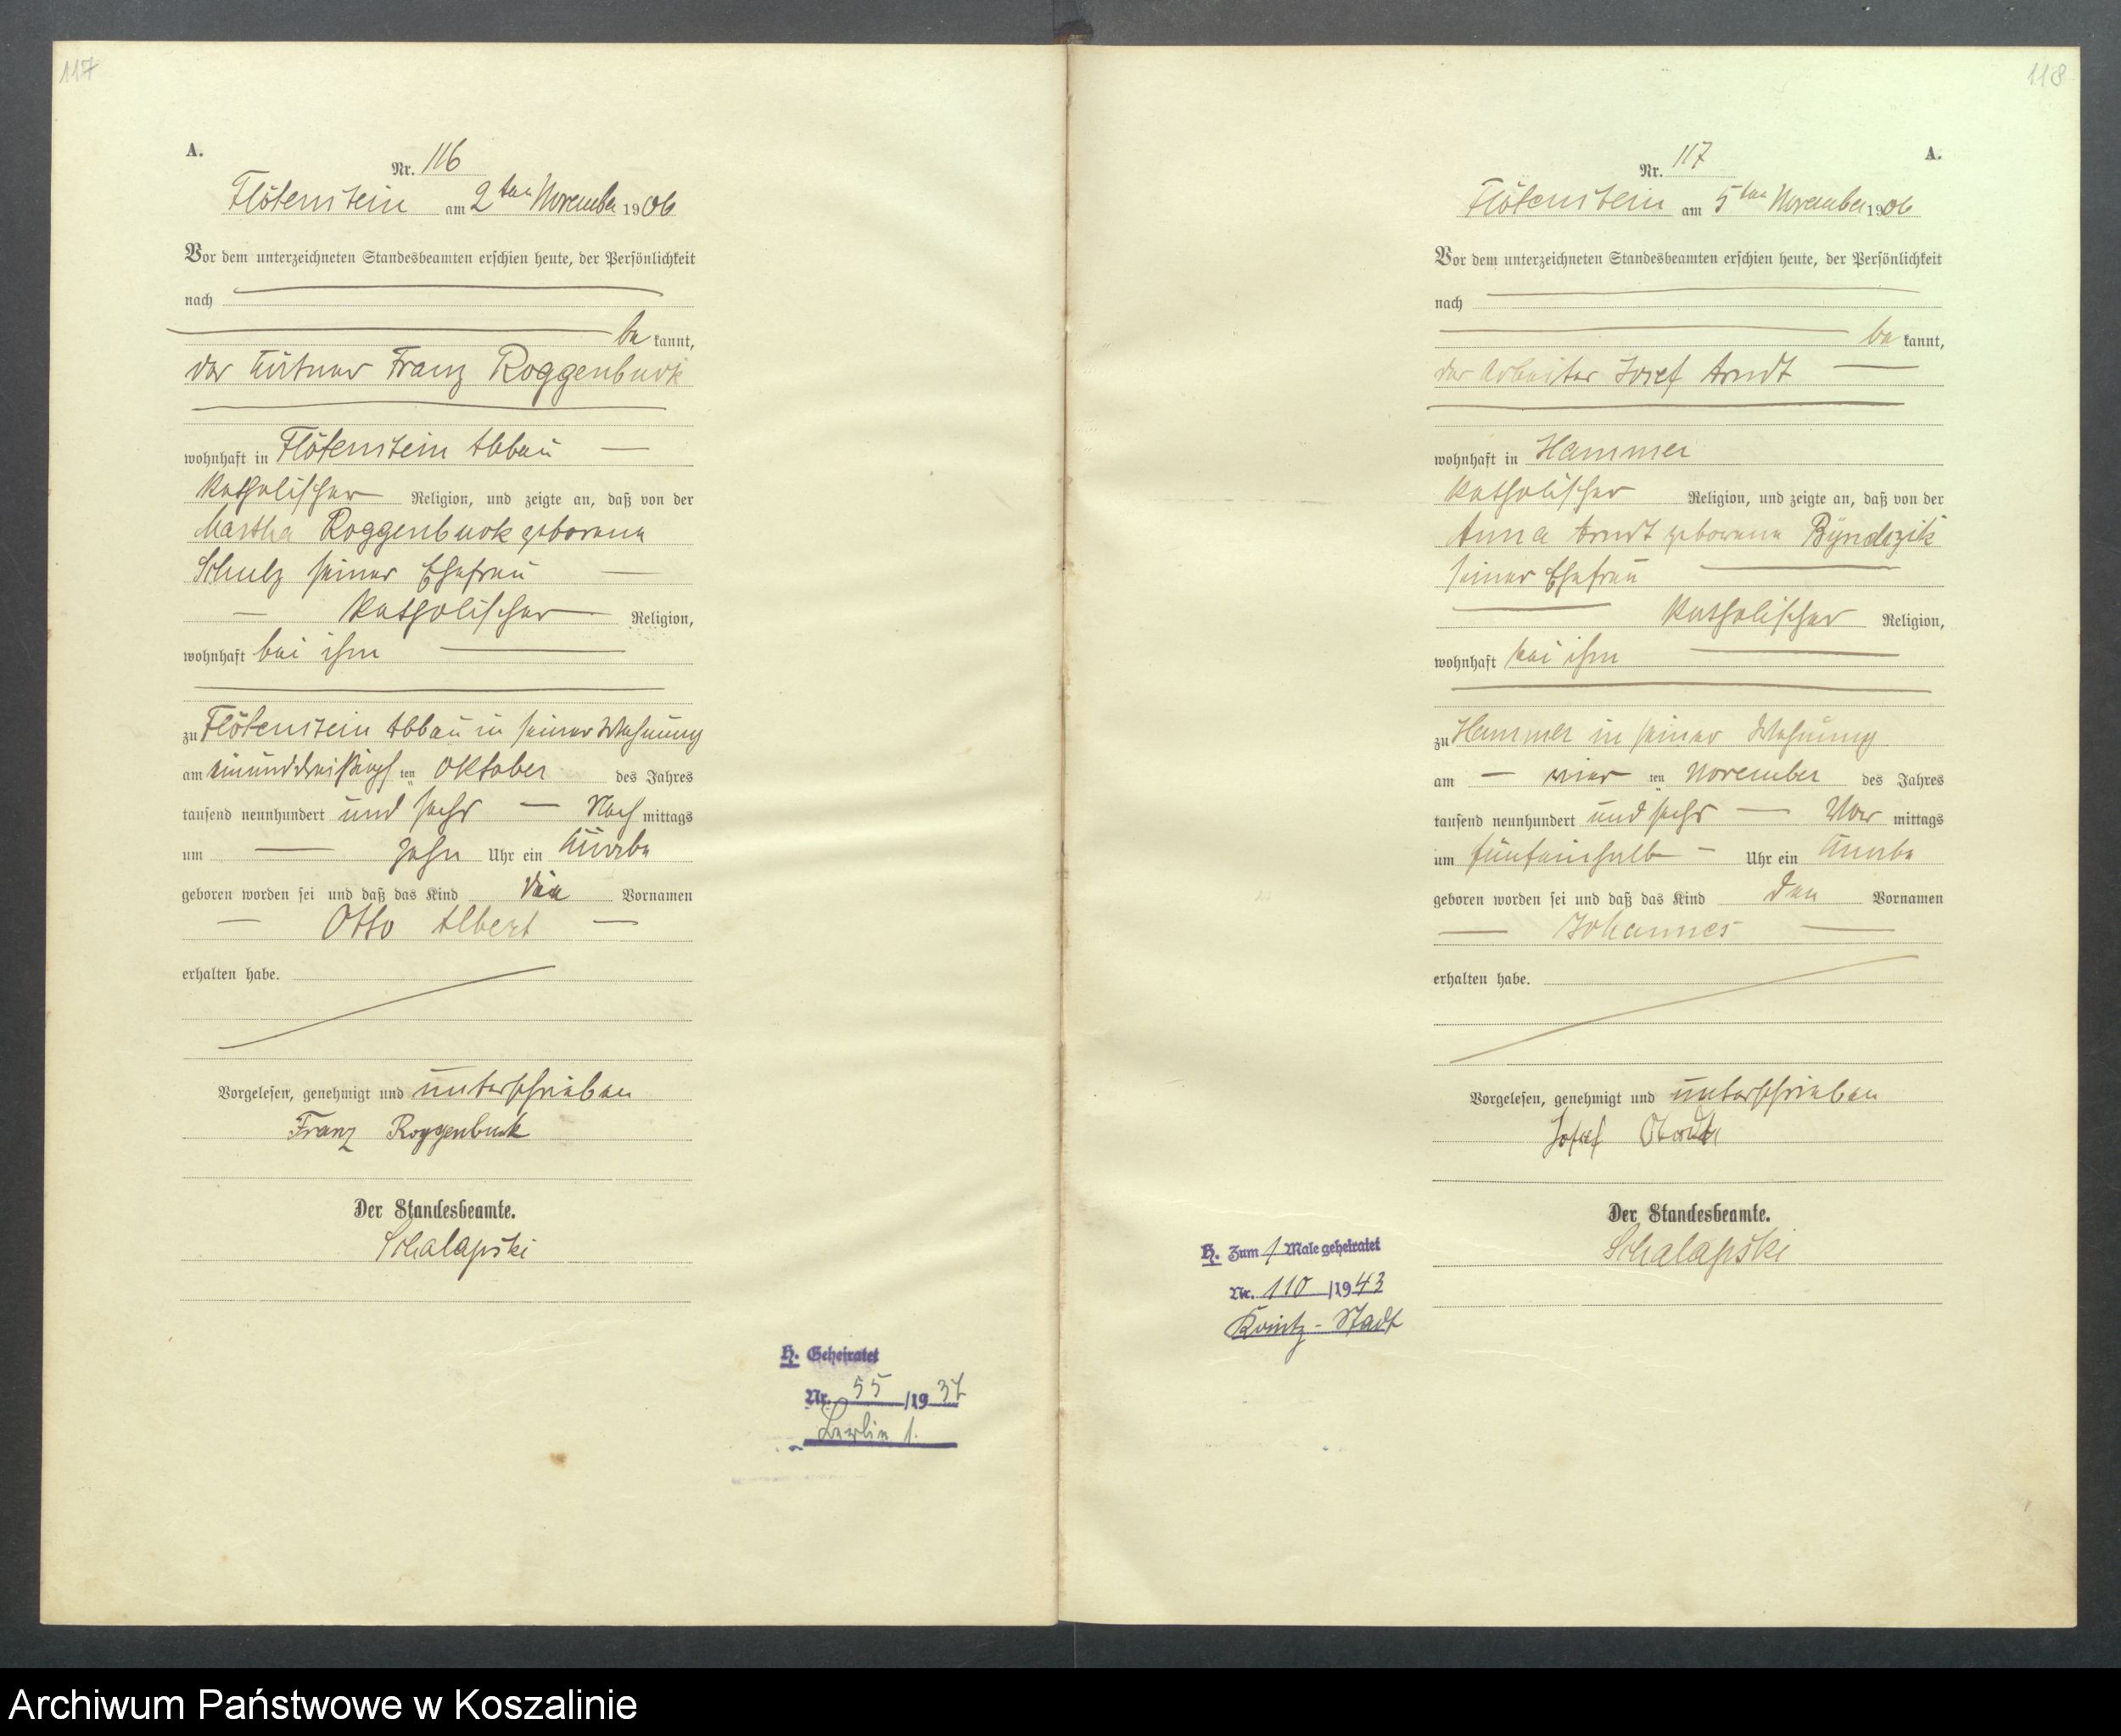 117
A.
Nr. 116
Flötenstein am 2ten November 1906
Vor dem unterzeichneten Standesbeamten erschien heute, der Persönlichkeit
nach
be kannt,
der Franz Roggenbuck
wohnhaft in Flötenstein Abbau
katholischer Religion, und zeigte an, daß von der
Martha Roggenbuck geborene
Schulz seiner Ehefrau
katholischer Religion,
wohnhaft bei ihm
zu Flötenstein Abbau in seiner Wohnung
am einunddreißigsten Oktober des Jahres
tausend neunhundert und sechs Nach mittags
um zehn Uhr ein Knabe
geboren worden sei und daß das Kind die Vornamen
Otto Albert
erhalten habe.
Vorgelesen, genehmigt und unterschrieben
Franz Roggenbuck
Der Standesbeamte.
Schalapski
H. Geheiratet
Nr. 55 /1937
Berlin 1.
118
A.
Nr. 117
Flötenstein am 5ten November 1906
Vor dem unterzeichneten Standesbeamten erschien heute, der Persönlichkeit
nach
be kannt,
der Arbeiter Josef Arndt
wohnhaft in Hammer
katholischer Religion, und zeigte an, daß von der
Anna Arndt geborene Byndzik
seiner Ehefrau
katholischer Religion,
wohnhaft bei ihm
zu Hammer in seiner Wohnung
am vier ten November des Jahres
tausend neunhundert und sechs Vor mittags
um fünfeinhalb Uhr ein Knabe
geboren worden sei und daß das Kind den Vornamen
Johannes
erhalten habe.
Vorgelesen, genehmigt und unterschrieben
Josef
Der Standesbeamte.
Schalapski
H. Zum 1 Male geheiratet
Nr. 110 /1943
Konitz-Stadt
Archiwum Państwowe w Koszalinie